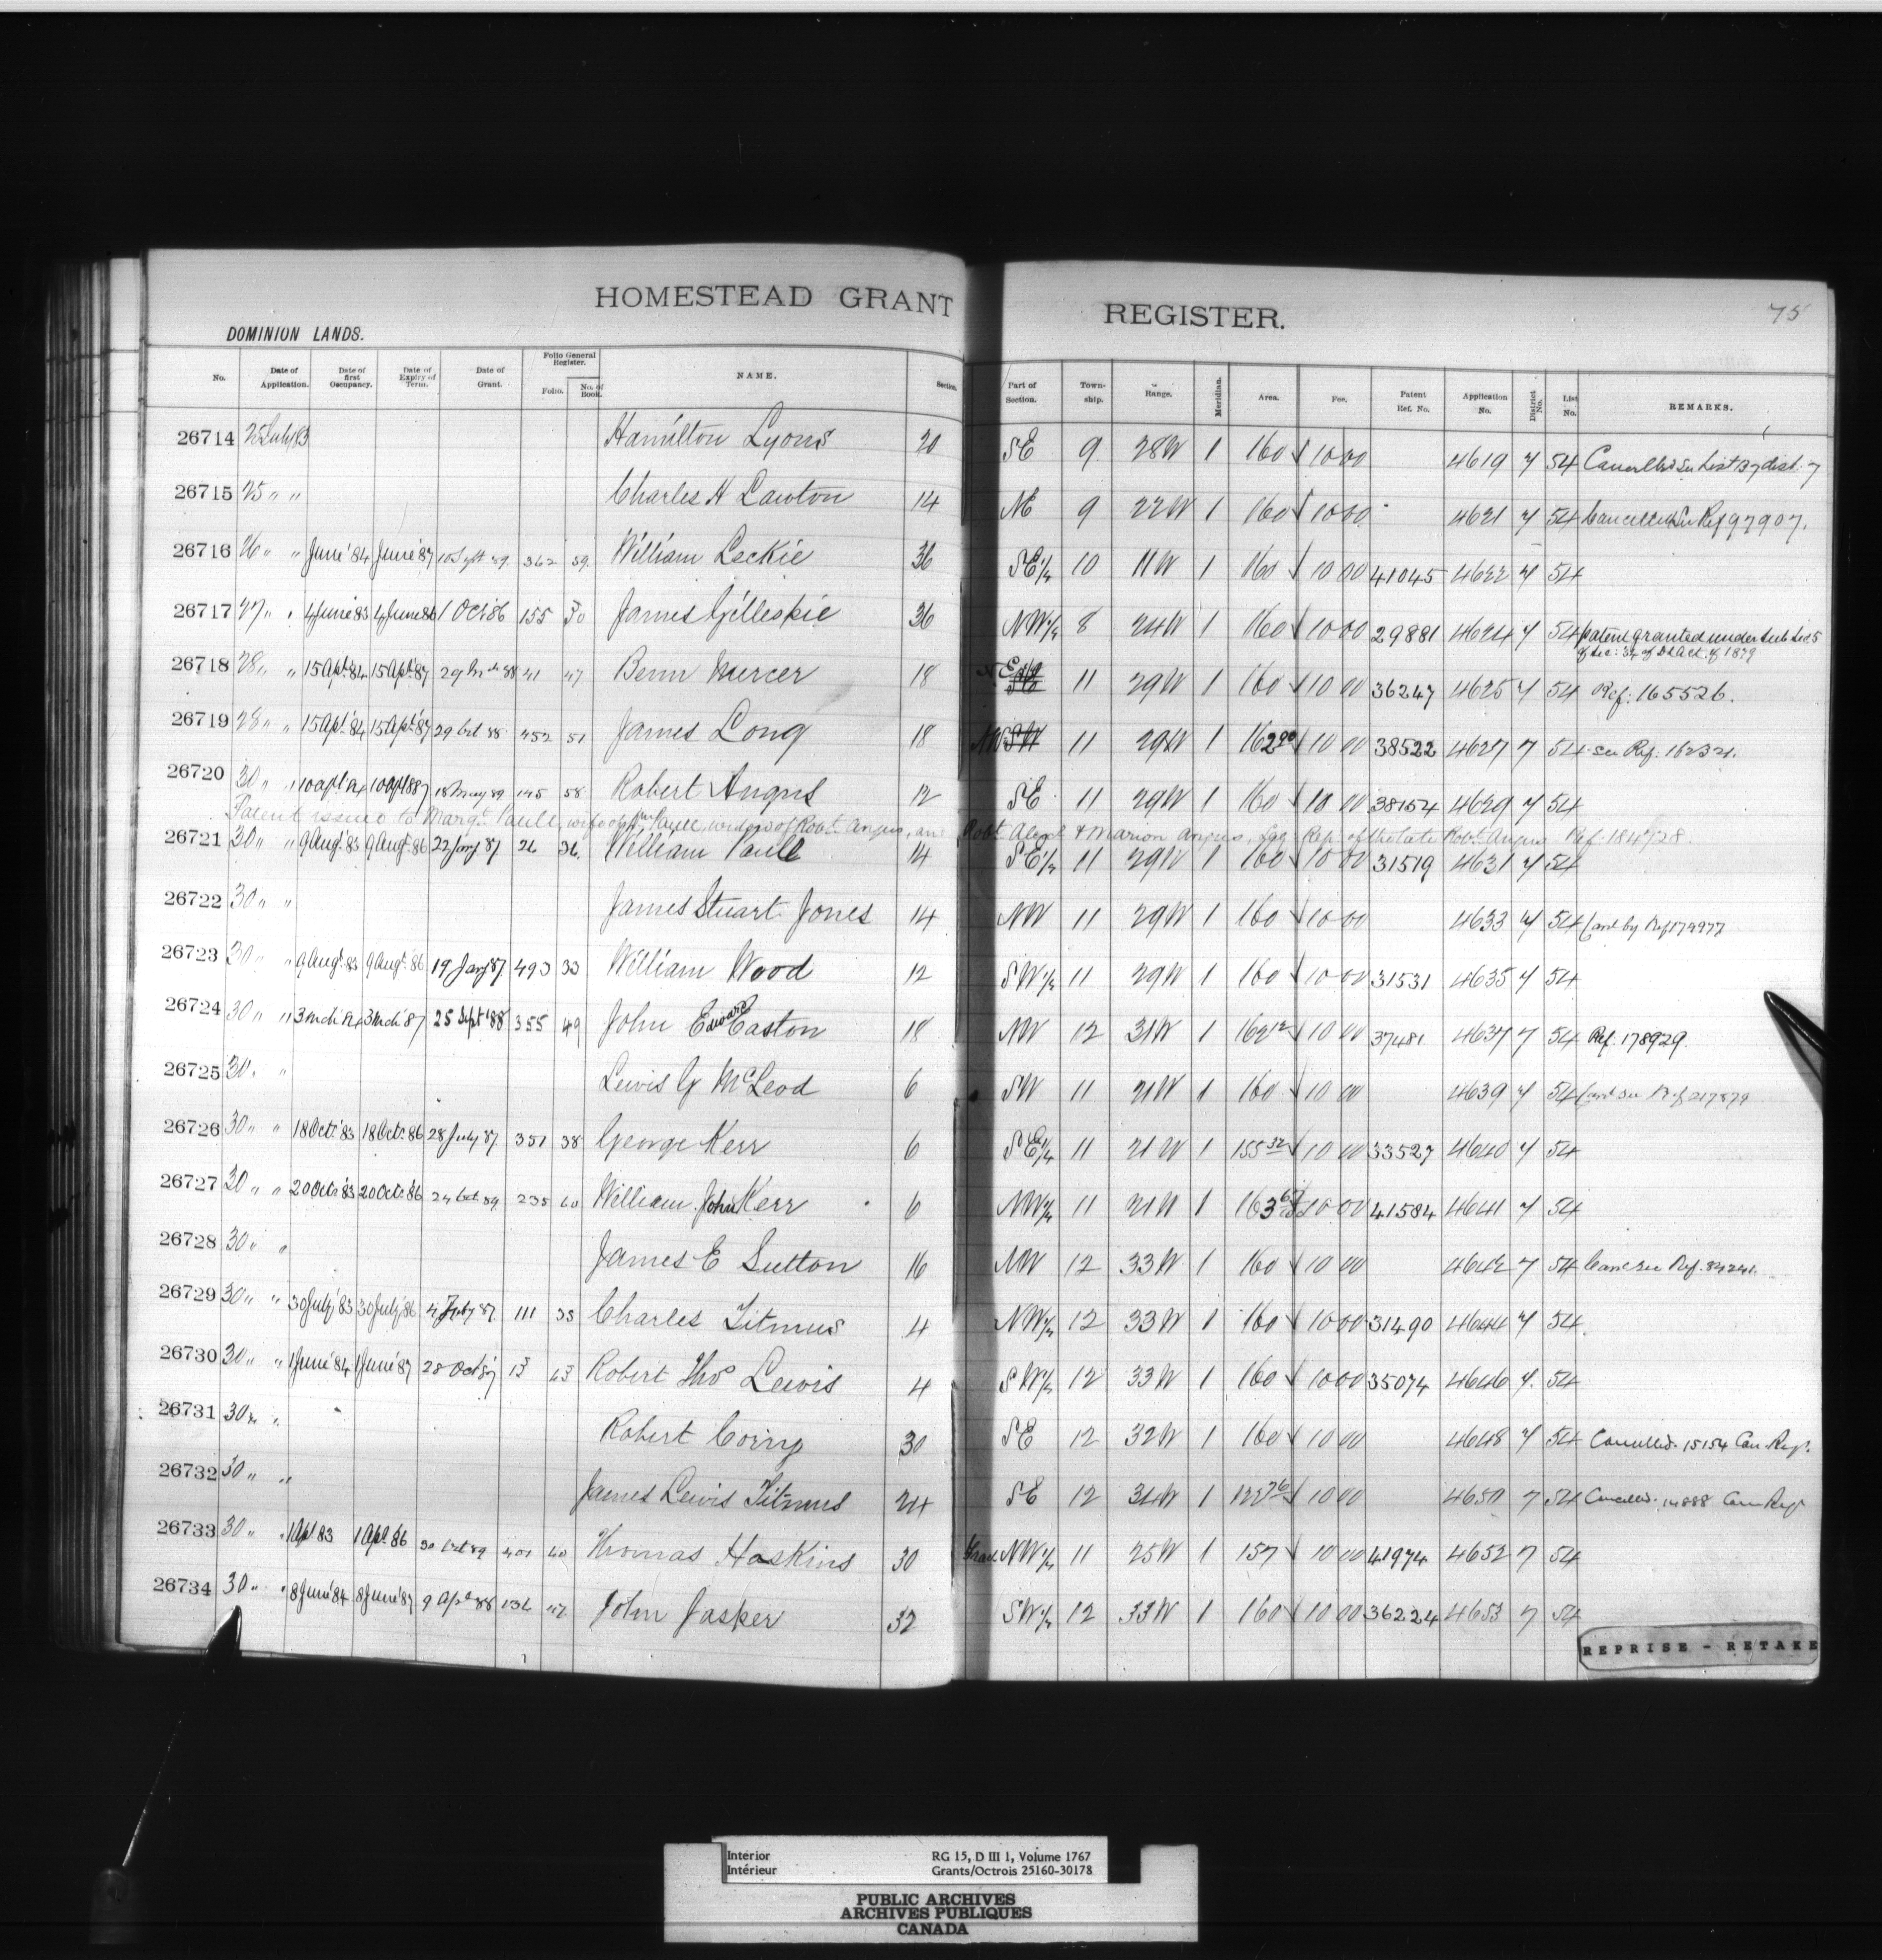 HOMESTEAD GRANT REGISTER.
75
DOMINION LANDS.
No. Date of Application. Date of first Occupancy. Date of Expiry of Term. Date of Grant. Folio General Register. Folio. No. of Book. NAME. Section. Part of Section. Town-ship. Range. Meridian. Area. Fee. Patent Ref. No. Application No. District No. List No. REMARKS.
26714 25 July 83 Hamilton Lyons 20 SE 9 28W 1 160 10 00 4619 7 54 Cancelled See List 137 dist. 7
26715 25 " " Charles H Lawton 14 NE 9 22W 1 160 10 00 4621 7 54 Cancelled See Ref 97907.
26716 26 " " June '84 June '87 10 Sept 89 362 59 William Leckie 36 SE 1/4 10 11W 1 160 10 00 41045 4622 7 54
26717 27 " " 4 June 83 4 June 86 1 Oct 86 155 30 James Gilleskie 36 NW 1/4 8 24W 1 160 10 00 29881 4624 7 54 Patent granted under Sub Sec 5
of Sec: 34 of D L Act. of 1879
26718 28 " " 15 Apl. '84 15 Apl. '87 29 Mch 88 41 47 Benn Mercer 18 NE 11 29W 1 160 10 00 36247 4625 7 54 Ref: 165526.
26719 28 " " 15 Apl. '84 15 Apl. '87 29 Oct 88 452 51 James Long 18 NW SW 11 29W 1 162 00 10 00 38522 4627 7 54 See Ref: 162321.
26720 30 " " 10 Apl 84 10 Apl 87 18 May 89 145 58 Robert Angus 12 SE 11 29W 1 160 10 00 38154 4629 7 54
Patent issued to Margt. Paull, wife of Wm Paull, widow of Robt. Angus, and Robt. Alexr. & Marion Angus, Leg. Rep. of the late Robt. Angus. Ref. 184728.
26721 30 " " 9 Augt. '83 9 Augt. '86 22 Jany 87 26 36 William Paull 14 SE 1/4 11 29W 1 160 10 00 31519 4631 7 54
26722 30 " " James Stuart Jones 14 NW 11 29W 1 160 10 00 4633 7 54 Canc by Ref 179977
26723 30 " " 9 Augt. 83 9 Augt. 86 19 Jany 87 493 33 William Wood 12 SW 1/4 11 29W 1 160 10 00 31531 4635 7 54
26724 30 " " 3 Mch 84 3 Mch '87 25 Sept '88 355 49 John Edward Easton 18 NW 12 31W 1 162 12 10 00 37481 4637 7 54 Ref. 178929.
26725 30 " Lewis G McLeod 6 SW 11 21W 1 160 10 00 4639 7 54 Canc See Ref 217879
26726 30 " " 18 Oct. '83 18 Oct. '86 28 July 87 351 38 George Kerr 6 SE 1/4 11 21W 1 155 32 10 00 33527 4640 7 54
26727 30 " " 20 Oct. '83 20 Oct. '86 24 Oct. 89 235 60 William John Kerr 6 NW 1/4 11 21W 1 163 10 00 41584 4641 7 54
26728 30 " " James E Sutton 16 NW 12 33W 1 160 10 00 4642 7 54 Canc See Ref. 84241.
26729 30 " " 30 July '83 30 July '86 4 July 87 111 35 Charles Titmus 4 NW 1/4 12 33W 1 160 10 00 31490 4644 7 54
26730 30 " " 1 June '84 1 June '87 28 Oct 87 13 43 Robert Thos Lewis 4 SW 1/4 12 33W 1 160 10 00 35074 4646 7 54
26731 30 " " Robert Corny 30 SE 12 32W 1 160 10 00 4648 7 54 Cancelled. 15154 Can. Regr.
26732 30 " " James Lewis Titmus 24 SE 12 34W 1 122 76 10 00 4650 7 54 Cancelled. 14888 Can Regr
26733 30 " " 1 Apl 83 1 Apl. 86 30 Oct 89 401 60 Thomas Hoskins 30 Fracl. NW 1/4 11 25W 1 157 10 00 41974 4652 7 54
26734 30 " " 8 June '84 8 June '87 9 Apl 88 136 47 John Jasper 32 SW 1/4 12 33W 1 160 10 00 36224 4653 7 54
REPRISE - RETAKE
Interior RG 15, D III 1, Volume 1767
Intérieur Grants/Octrois 25160-30178
PUBLIC ARCHIVES
ARCHIVES PUBLIQUES
CANADA